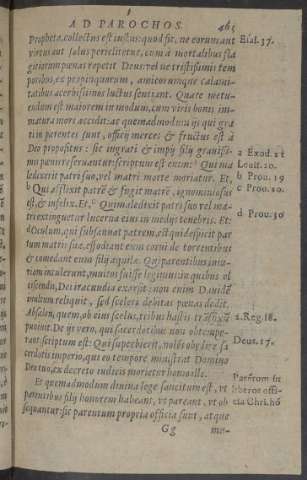 AD PAROCHOS. 465
Propheta, collectus est iustus: quod fit, ne eorum aut
virtus aut salus periclitetur, cum à mortalibus fla
gitiorum pœnas repetit Deus: vel ne tristissimis tem
poribus, ex propinquorum, amicorumque calami-
tatibus acerbissimos luctus sentiant. Quare metu-
endum est maiorem in modum, cum viris bonis im-
matura mors accidit: ac quemadmodum iis qui gra
ti in parentes sunt, officij merces & fructus est à
Deo propositus: sic ingrati & impij filij grauissi-
mis pœnis reseruantur: scriptum est enim: Qui ma
ledixerit patri suo, vel matri morte moriatur. Et,
b Qui affligit patrẽ & fugit matrẽ, ignominiosus
est, & infelix. Et, c Qui maledixit patri suo vel ma-
tri extinguetur lucerna eius in medijs tenebris. Et:
d Oculum, qui subsannat patrem, et qui despicit par
tum matris suæ, effodiant eum corui de torrentibus
& comedant eum filij aquilæ. Qui parentibus iniu-
riam intulerunt, multos fuisse legimus in quibus vl
ciscendis, Dei iracundia exarsit: non enim Dauidẽ
inultum reliquit, sed sceleri debitas pœnas dedit.
Absalon, quem, ob eius scelus, tribus hastis trãsfixũ
puniuit. De ijs vero, qui sacerdotibus non obtempe-
rant scriptum est: Qui superbierit, nolẽs obedire sa
cerdotis imperio, qui eo tempore ministrat Domino
Deo tuo, ex decreto iudicis morietur homo ille.
Et quemadmodum diuina lege sancitum est, vt
parentibus filij honorem habeant, vt pareant, vt ob
sequantur: sic parentum propria officia sunt, atque
Gg
mu-
Esai. 57.
a Exod. 21
Leuit. 20.
b Prou. 19
c Prou. 20.
d Prou. 30
2. Reg. 18.
Deut. 17.
Parẽtum in
liberos offi-
cia